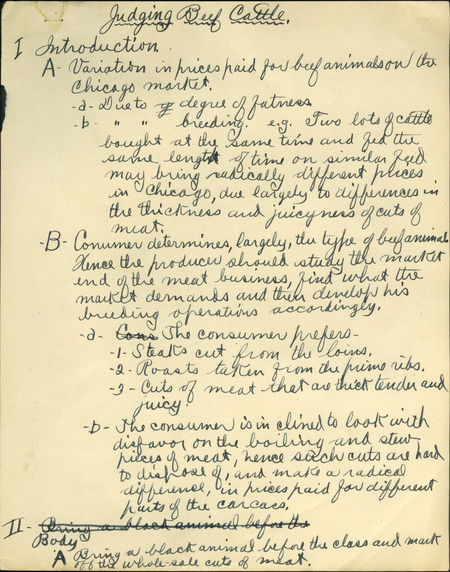 Judging Beef Cattle.
I Introduction
A- Variation in prices paid for beef animals on the
Chicago market.
-a- Due to degree of fatness
-b- " " " breeding. e.g. Two lots of cattle
bought at the same time and fed the
same length of time on similar feed
may bring radically different prices
in Chicago, due largely to differences in
the thickness and juicyness of cuts of
meat.
-B- Conumer determines, largely, the type of beef animal.
Hence the producer should study the market
end of the meat business, find what the
market demands and then develop his
breeding operations accordingly.
-a- Cons The consumer prefers-
-1- Steaks cut from the loins.
-2- Roasts taken from the prime ribs.
-3- Cuts of meat that are thick tender and
juicy.
-b- The consumer is in clined to look with
disfavor on the boiling and stew
pieces of meat, hence such cuts are hard
to dispose of, and make a radical
difference, in prices paid for different
parts of the carcacs.
II- Bring a black animal before the
Body
A Bring a black animal before the class and mark
off the whole sale cuts of meat.